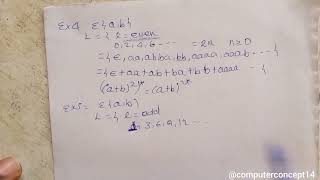 Ex4 Σ{a,b}
L = { L = even
0, 2, 4, 6 ---- = 2n n≥0
= {ε, aa, abba, bb, aaaa, aaab --- {
= {ε + aa + ab + ba + bb + aaaa ---- {
((a+b)²)* = (a+b)²*
Ex5= Σ{a,b}
L = { L = odd
3, 6, 9, 12 ---
@computerconcept14